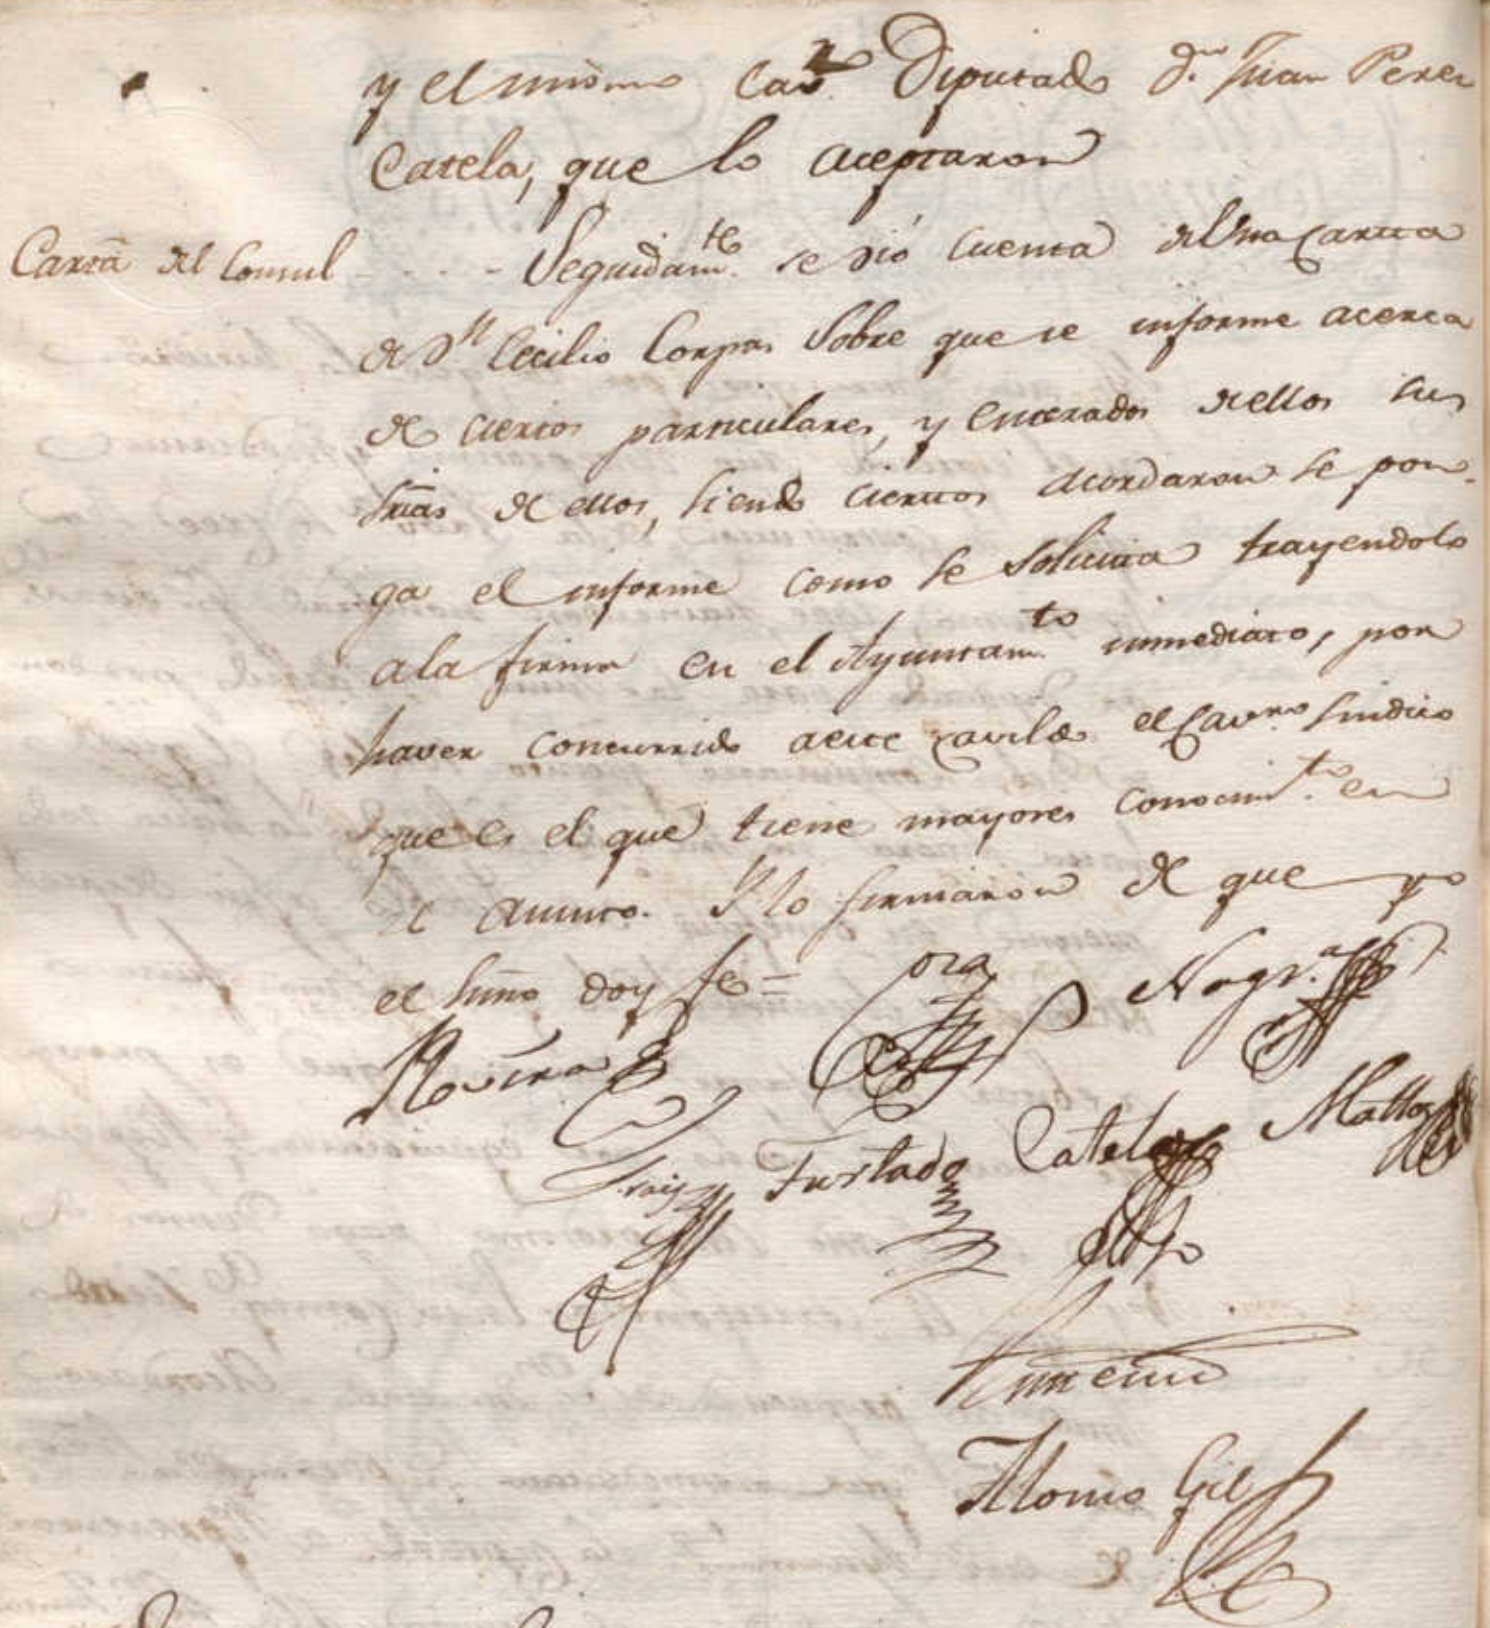 y el mismo Cav.ro Diputado D.n Juan Perez
Catela, que lo aceptaron
Carta del Consul - - - - Seguidam.te se dió cuenta de una carta
de D.n Cecilio Corpas sobre que se informe acerca
de ciertos particulares, y enterados dellos sus
srias de ellos, siendo ciertos acordaron se pon-
ga el informe como se solicita trayendolo
a la firma en el Ayuntam.to inmediato, por
haver concurrido a este cavildo el Cav.ro Sindico
que es el que tiene mayores conocim.tos en
el asunto. Y lo firmaron de que yo
el Ssno doy fe =
Rovira
Nogr.a
Furtado Catela Mattos
Alonso Gil